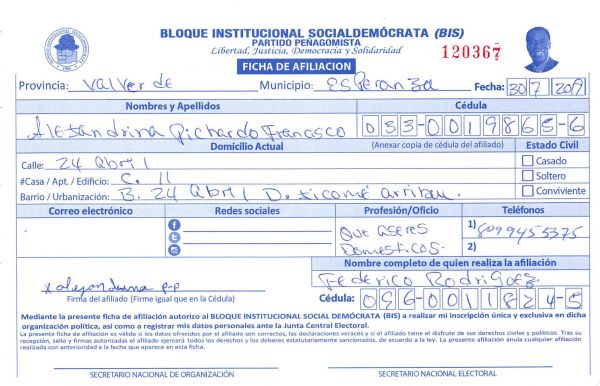 BLOQUE INSTITUCIONAL SOCIALDEMÓCRATA (BIS)
PARTIDO PEÑAGOMISTA
Libertad, Justicia, Democracia y Solidaridad
120367
FICHA DE AFILIACION
Provincia: Valverde Municipio: Esperanza Fecha: 30 7 2019
Nombres y Apellidos Cédula
Alejandrina Pichardo Francisco 033-0019865-6
Domicilio Actual (Anexar copia de cédula del afiliado) Estado Civil
Calle: 24 Abril Casado
#Casa / Apt. / Edificio: C. 11 Soltero
Barrio / Urbanización: B. 24 Abril D. Jicomé arriba. Conviviente
Correo electrónico Redes sociales Profesión/Oficio Teléfonos
Que aseres 1) 8099455375
Domesticos. 2)
Nombre completo de quien realiza la afiliación
Federico Rodriguez
Firma del afiliado (Firme igual que en la Cédula) Cédula: 096-0011824-5
Mediante la presente ficha de afiliación autorizo al BLOQUE INSTITUCIONAL SOCIAL DEMÓCRATA (BIS) a realizar mi inscripción única y exclusiva en dicha
organización política, así como a registrar mis datos personales ante la Junta Central Electoral.
La presente ficha de afiliación es válida si los datos ofrecidos por el afiliado son correctos, las declaraciones veraces y si el afiliado tiene el disfrute de sus derechos civiles y políticos. Tras su
recepción, sello y firmas autorizadas el afiliado ejercerá todos los derechos y los deberes estatutariamente sancionados, de acuerdo a la ley. La presente afiliación anula cualquier afiliación
realizada con anterioridad a la fecha que aparece en esta ficha.
SECRETARIO NACIONAL DE ORGANIZACIÓN SECRETARIO NACIONAL ELECTORAL